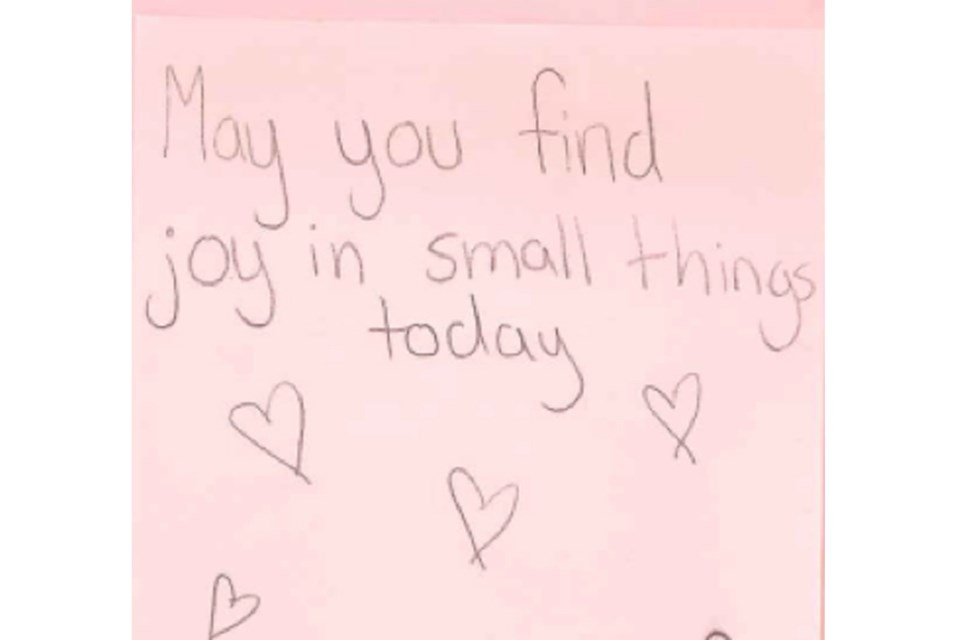 May you find
joy in small things
today